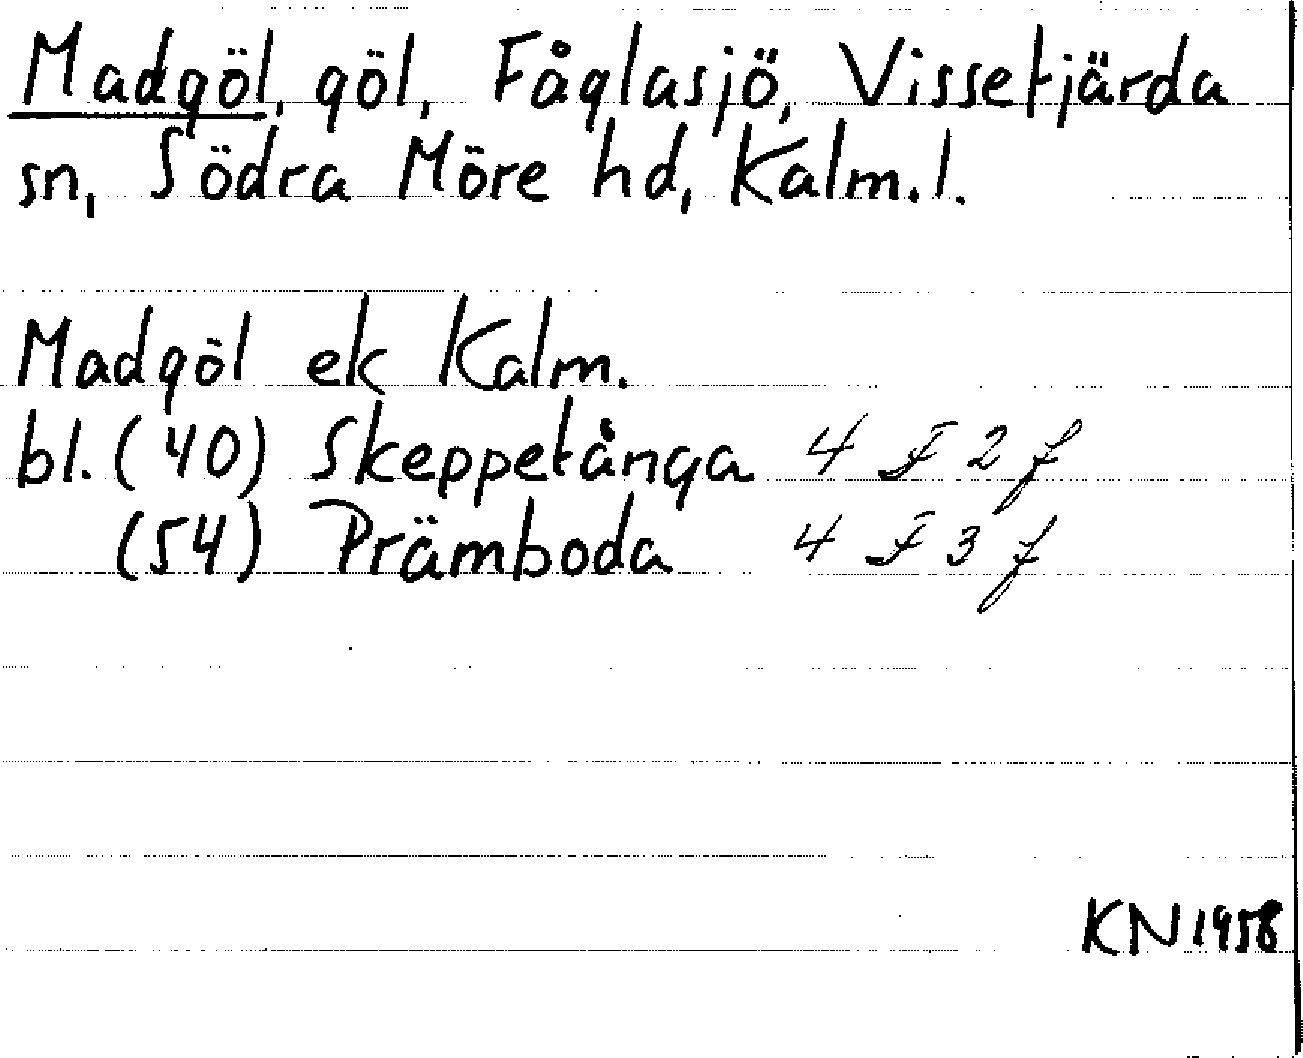 Madgöl, göl, Fåglasjö, Vissefjärda
sn, Södra Möre hd, Kalm. l.
Madgöl ek Kalm.
bl. (40) Skeppetånga 4 F 2 f
(54) Prämboda 4 F 3 f
KN 1958